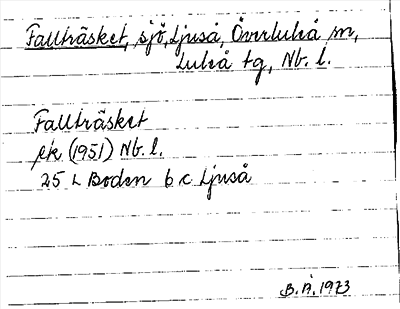 Fallträsket, sjö, Ljuså, Överluleå sn,
Luleå tg, Nb. l.
Fallträsket
ek (1951) Nb. l.
25 L Boden 6 c Ljuså
B. Å. 1973